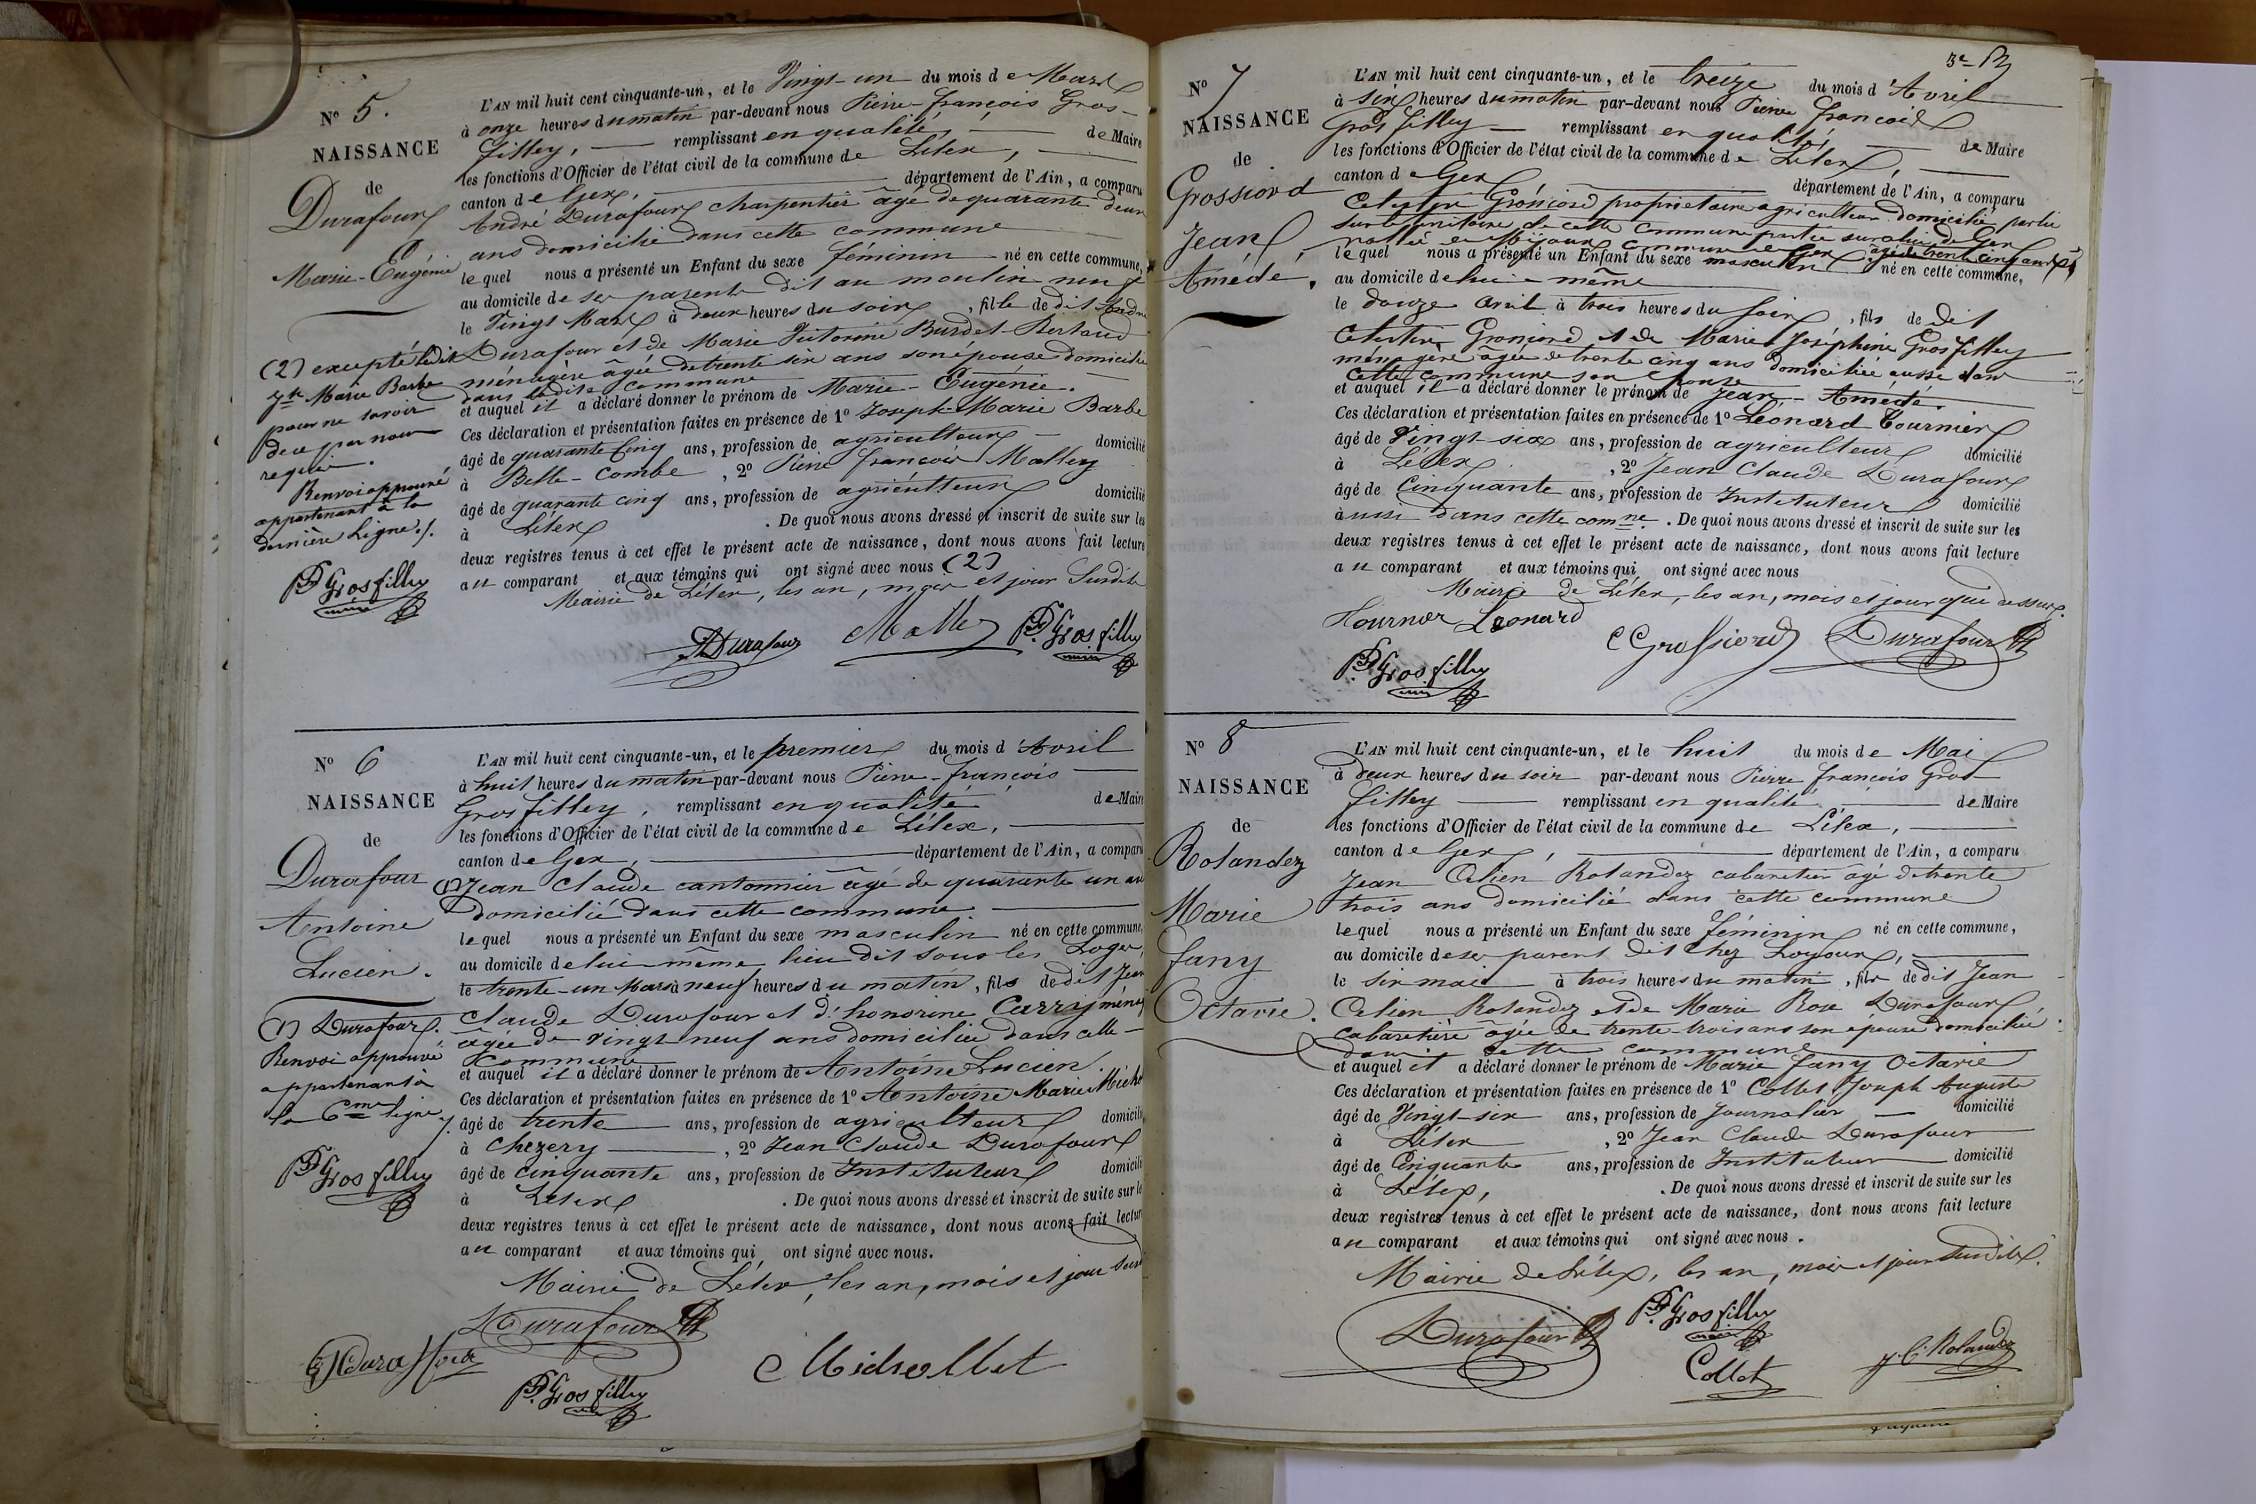 Nº 5.
NAISSANCE
de
Durafour
Marie-Eugénie
(2) excepté ledit
Marie Barbe
pour ne savoir
de ce par nous
requis.
Renvoi approuvé
appartenant à la
dernière Ligne ./.
Pre Fs Grosfilley
maire
L'AN mil huit cent cinquante-un, et le Vingt-un du mois de Mars
à onze heures du matin par-devant nous Pierre-françois Gros-
filley, remplissant en qualité, de Maire
les fonctions d'Officier de l'état civil de la commune de Lélex,
canton de Gex, département de l'Ain, a comparu
André Durafour charpentier âgé de quarante deux
ans domicilié dans cette commune
lequel nous a présenté un Enfant du sexe féminin né en cette commune,
au domicile de ses parents dit au moulin neuf
le Vingt Mars à deux heures du soir, fille de dit André
Durafour et de Marie Victorine Burdet Bertaud
ménagère âgée de trente six ans son épouse domiciliée
dans ladite commune
et auquel il a déclaré donner le prénom de Marie-Eugénie.
Ces déclaration et présentation faites en présence de 1º Joseph-Marie Barbe
âgé de quarante cinq ans, profession de agriculteur domicilié
à Belle-Combe, 2º Pierre françois Malley
âgé de quarante cinq ans, profession de agriculteur domicilié
à Lélex. De quoi nous avons dressé et inscrit de suite sur les
deux registres tenus à cet effet le présent acte de naissance, dont nous avons fait lecture
au comparant et aux témoins qui ont signé avec nous (2)
Mairie de Lélex, les an, mois et jour Susdits
A Durafour Malley Pre Fs Grosfilley
maire
Nº 6
NAISSANCE
de
Durafour
Antoine
Lucien.
(1) Durafour.
Renvoi approuvé
appartenant à
la 6me ligne ./.
Pre Fs Grosfilley
L'AN mil huit cent cinquante-un, et le premier du mois d'Avril
à huit heures du matin par-devant nous Pierre-françois
Grosfilley, remplissant en qualité de Maire
les fonctions d'Officier de l'état civil de la commune de Lélex,
canton de Gex, département de l'Ain, a comparu
(1) Jean Claude cantonnier âgé de quarante un ans
domicilié dans cette commune
lequel nous a présenté un Enfant du sexe masculin né en cette commune,
au domicile de lui-même lieu dit sous les Loges,
le trente-un Mars à neuf heures du matin, fils de dit Jean
Claude Durafour et d'honorine Carraz ménag
âgée de vingt neuf ans domiciliée dans cette
commune
et auquel il a déclaré donner le prénom de Antoine Lucien.
Ces déclaration et présentation faites en présence de 1º Antoine Marie Michel
âgé de trente ans, profession de agriculteur domicilié
à Chezery, 2º Jean Claude Durafour
âgé de cinquante ans, profession de Instituteur domicilié
à Lélex. De quoi nous avons dressé et inscrit de suite sur les
deux registres tenus à cet effet le présent acte de naissance, dont nous avons fait lecture
au comparant et aux témoins qui ont signé avec nous.
Mairie de Lélex, les an, mois et jour Susd
Durafour
Duraffour
Pre Fs Grosfilley
3e
Nº 7
NAISSANCE
de
Grossiord
Jean
Amédé.
L'AN mil huit cent cinquante-un, et le treize du mois d'Avril
à six heures du matin par-devant nous Pierre françois
Grosfilley remplissant en qualité, de Maire
les fonctions d'Officier de l'état civil de la commune de Lélex,
canton de Gex département de l'Ain, a comparu
Celestin Grossiord propriétaire agriculteur domicilié partie
sur le territoire de cette commune partie sur celui de Gex
commune de Gex âgé de trente cinq ans
lequel nous a présenté un Enfant du sexe masculin né en cette commune,
au domicile de lui-même
le douze avril à trois heures du soir, fils de dit
Celestin Grossiord et de Marie Joséphine Grosfilley
ménagère âgée de trente cinq ans domiciliée aussi dans
cette commune son épouse
et auquel il a déclaré donner le prénom de Jean-Amédé.
Ces déclaration et présentation faites en présence de 1º Léonard Tournier
âgé de Vingt-six ans, profession de agriculteur domicilié
à Lélex, 2º Jean Claude Durafour
âgé de Cinquante ans, profession de Instituteur domicilié
aussi dans cette comne. De quoi nous avons dressé et inscrit de suite sur les
deux registres tenus à cet effet le présent acte de naissance, dont nous avons fait lecture
au comparant et aux témoins qui ont signé avec nous
Mairie de Lélex, les an, mois et jour que dessus.
Tournier Léonard C Grossiord Durafour
Pre Fs Grosfilley
Nº 8
NAISSANCE
de
Rolandez
Marie
fany
Octavie.
L'AN mil huit cent cinquante-un, et le huit du mois de Mai
à deux heures du soir par-devant nous Pierre françois Gros
filley remplissant en qualité, de Maire
les fonctions d'Officier de l'état civil de la commune de Lélex,
canton de Gex, département de l'Ain, a comparu
Jean Rolandez cabaretier âgé de trente
trois ans domicilié dans cette commune
lequel nous a présenté un Enfant du sexe féminin né en cette commune,
au domicile de ses parens dit Chez
le six mai à trois heures du matin, fils de dit Jean
Rolandez et de Marie Rose Durafour
cabaretière âgée de trente-trois ans son épouse domiciliée
dans cette commune
et auquel il a déclaré donner le prénom de Marie fany Octavie
Ces déclaration et présentation faites en présence de 1º Collet Joseph Auguste
âgé de Vingt-six ans, profession de Journalier domicilié
à Lélex, 2º Jean Claude Durafour
âgé de Cinquante ans, profession de Instituteur domicilié
à Lélex, . De quoi nous avons dressé et inscrit de suite sur les
deux registres tenus à cet effet le présent acte de naissance, dont nous avons fait lecture
au comparant et aux témoins qui ont signé avec nous.
Mairie de Lélex, les an, mois et jour Susdits.
Durafour Pre Fs Grosfilley
maire
Collet J. C. Rolandez